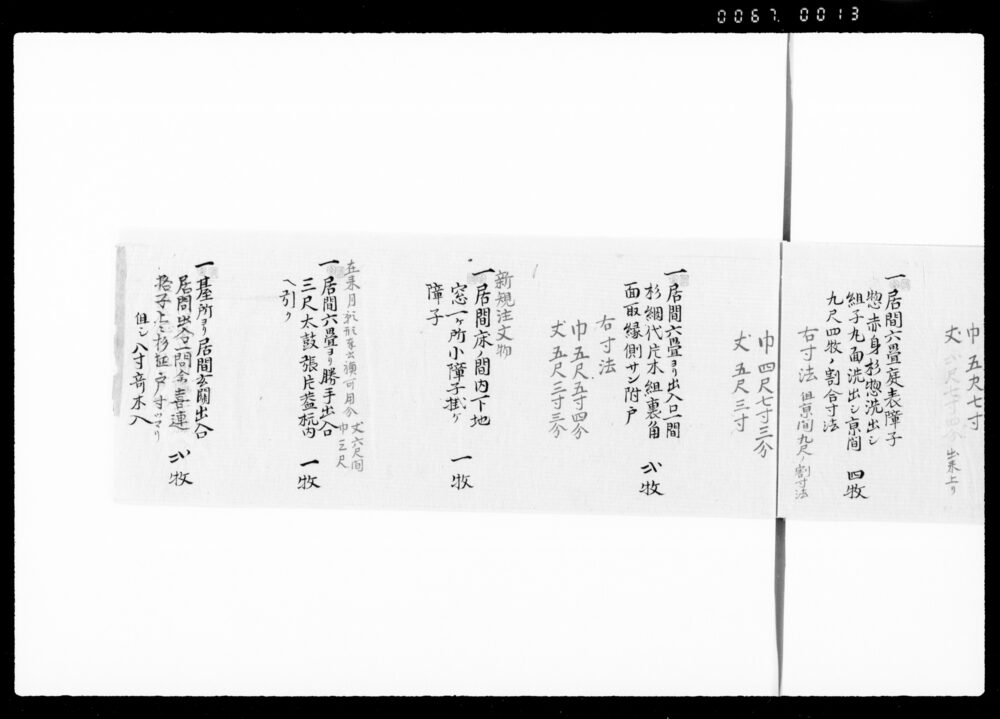 0067. 0013
巾 五尺七寸
丈 出来上り
一居間六畳庭表障子
惣赤身杉惣洗出シ
組子九面洗出シ京間 四牧
九尺四牧ノ割合寸法
右寸法 但京間九尺ノ割寸法
巾 四尺七寸三分
丈 五尺三寸
一居間六畳ヨリ出入口一間
杉網代片木組裏角
面取縁側サン附戸 弐牧
右寸法
巾五尺五寸四分
丈五尺三寸三分
新規注文物
一居間床ノ間内下地
窓一ヶ所小障子掛ケ 一牧
障子
丈六尺間
巾三尺
一居間六畳ヨリ勝手出入口
三尺太鼓張片 内 一牧
ヘ引り
一台所ヨリ居間玄関出入口
居間出入口一間 弐牧
格子上 杉 戸
但シ八寸 木入